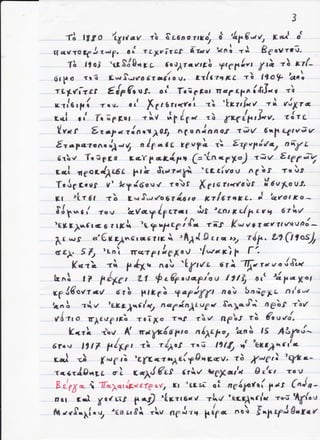 3
Τὸ 1880 ἔγιναν τὰ δεσποτικά, ὁ ἄμβων, καὶ ὁ
παντοκράτωρ. οἱ τεχνῖτες ἦταν ἀπὸ τὰ Βρονταῦ.
Τὸ 1903 ἐκδόθηκε σουλτανικὸ φιρμάνι γιὰ τὸ κτί-
σιμο τοῦ κωδωνοστασίου. κτίστηκε τὸ 1904 ἀπὸ
τεχνῖτες Σέρβους. οἱ Τοῦρκοι παρεμπόδιζαν τὸ
κτίσιμό του. οἱ Χριστιανοὶ τὸ ἔκτιζαν τὴ νύχτα
καὶ οἱ Τοῦρκοι τὴν ἡμέρα τὸ γκρέμιζαν. τότε
ἕνας πρόπαππος τῶν σημερινῶν
πέρασε κρυφὰ τὸ Στρυμόνα, πῆγε
στὸν Τοῦρκο καϊμακάμη (=ἔπαρχο) τῶν Σερρῶν,
καὶ προκάλεσε μία διαταγὴ ἐκείνου πρὸς τοὺς
Τούρκους ν' ἀφήσουν τοὺς Χριστιανοὺς ἥσυχους.
κι ἔτσι τὸ κωδωνοστάσιο κτίστηκε. ἡ ἀνοικο-
δόμησί του ἀναφέρεται ὡς ἐπικείμενη στὴν
ἐκκλησιαστικὴ ἐφημερίδα τῆς Κωνσταντινουπό-
λεως «Ἐκκλησιαστικὴ Ἀλήθεια», τόμ. 29 (1905),
σελ. 57, ἐπὶ πατριάρχου Ἰωακεὶμ Γ΄.
Κατὰ τὴ μάχη ποὺ ἔγινε στὰ
ἀπὸ 17 μέχρι 21 Φεβρουαρίου 1913, οἱ ἄμαχοι
κρύβονταν στὸ μικρὸ φαράγγι ποὺ ὑπάρχει πίσω
ἀπὸ τὴν ἐκκλησία, παράλληλα δηλαδὴ πρὸς τὸν
νότιο πλευρικὸ τοῖχο της τὸν πρὸς τὸ βουνό.
Κατὰ τὸν Α΄ παγκόσμιο πόλεμο, ἀπὸ 15 Αὐγού-
στου 1917 μέχρι τὸ τέλος τοῦ 1918, ἡ ἐκκλησία
καὶ τὸ χωριὸ ἐγκαταλείφθηκαν. τὸ χωριὸ ἐγκα-
ταστάθηκε σὲ καλύβες στὴν ἀρχαία θέσι του
Βέργα ἢ Παλαιόκαστρον, κι ἐκεῖ οἱ πρόγονοί μας (παπ-
ποι καὶ γονεῖς μας) ἔκτισαν τὴν ἐκκλησία τοῦ Ἁγίου
τὴν πρώτη μέρα ποὺ ξημερώθηκαν